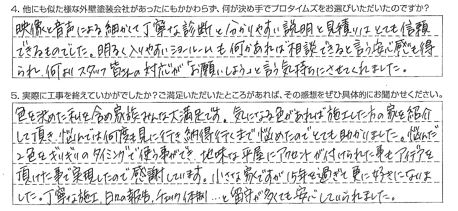 4. 他にも似た様な外壁塗装会社があったにもかかわらず、何が決め手でプロタイムズをお選びいただいたのですか？
映像と音声による細かくて丁寧な診断と分かりやすい説明と見積りはとても信頼
できるものでした。明るく入りやすいショールームも何かあれば相談できると言う安心感も得
られ、何よりスタッフ皆さんの対応が「お願いしよう」と言う気持ちにさせてくれました。
5. 実際に工事を終えていかがでしたか？ご満足いただいたところがあれば、その感想をぜひ具体的にお聞かせください。
色を決めた私を含め家族みんな大満足です。気になる色があれば施工した方の家を紹介
して頂き、悩んでは何度も見に行き納得行くまで悩めたのでとても助かりました。悩んだ
2色もギリギリのタイミングで使う事ができ、地味な平屋にアクセントが付けられた事もアイデアを
頂けた事で実現したので感謝しています。小さな家ですが15年を過ぎて更に好きになりま
した。丁寧な施工、日々の報告、チェック体制…、留守が多くても安心していられました。